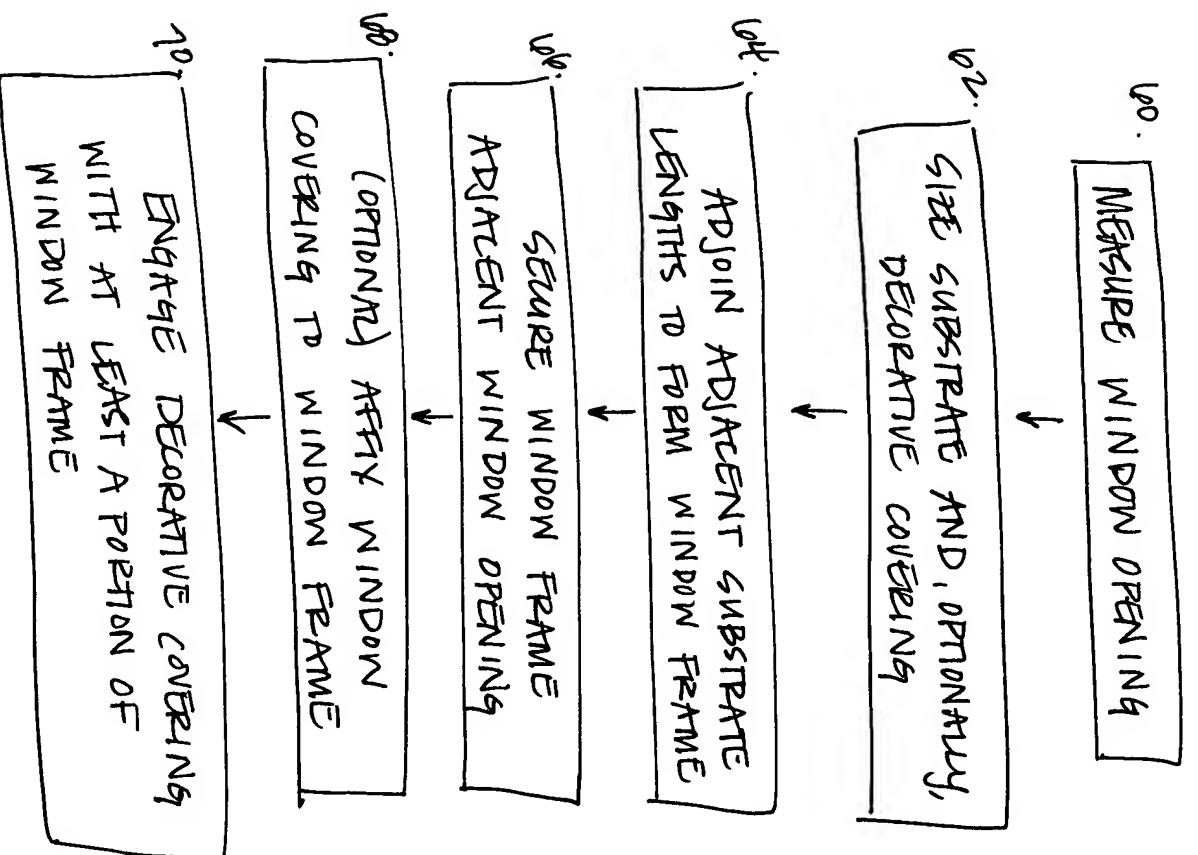 60.
MEASURE WINDOW OPENING
62.
SIZE SUBSTRATE AND, OPTIONALLY,
DECORATIVE COVERING
64.
ADJOIN ADJACENT SUBSTRATE
LENGTHS TO FORM WINDOW FRAME
66.
SECURE WINDOW FRAME
ADJACENT WINDOW OPENING
68.
(OPTIONAL) AFFIX WINDOW
COVERING TO WINDOW FRAME
70.
ENGAGE DECORATIVE COVERING
WITH AT LEAST A PORTION OF
WINDOW FRAME